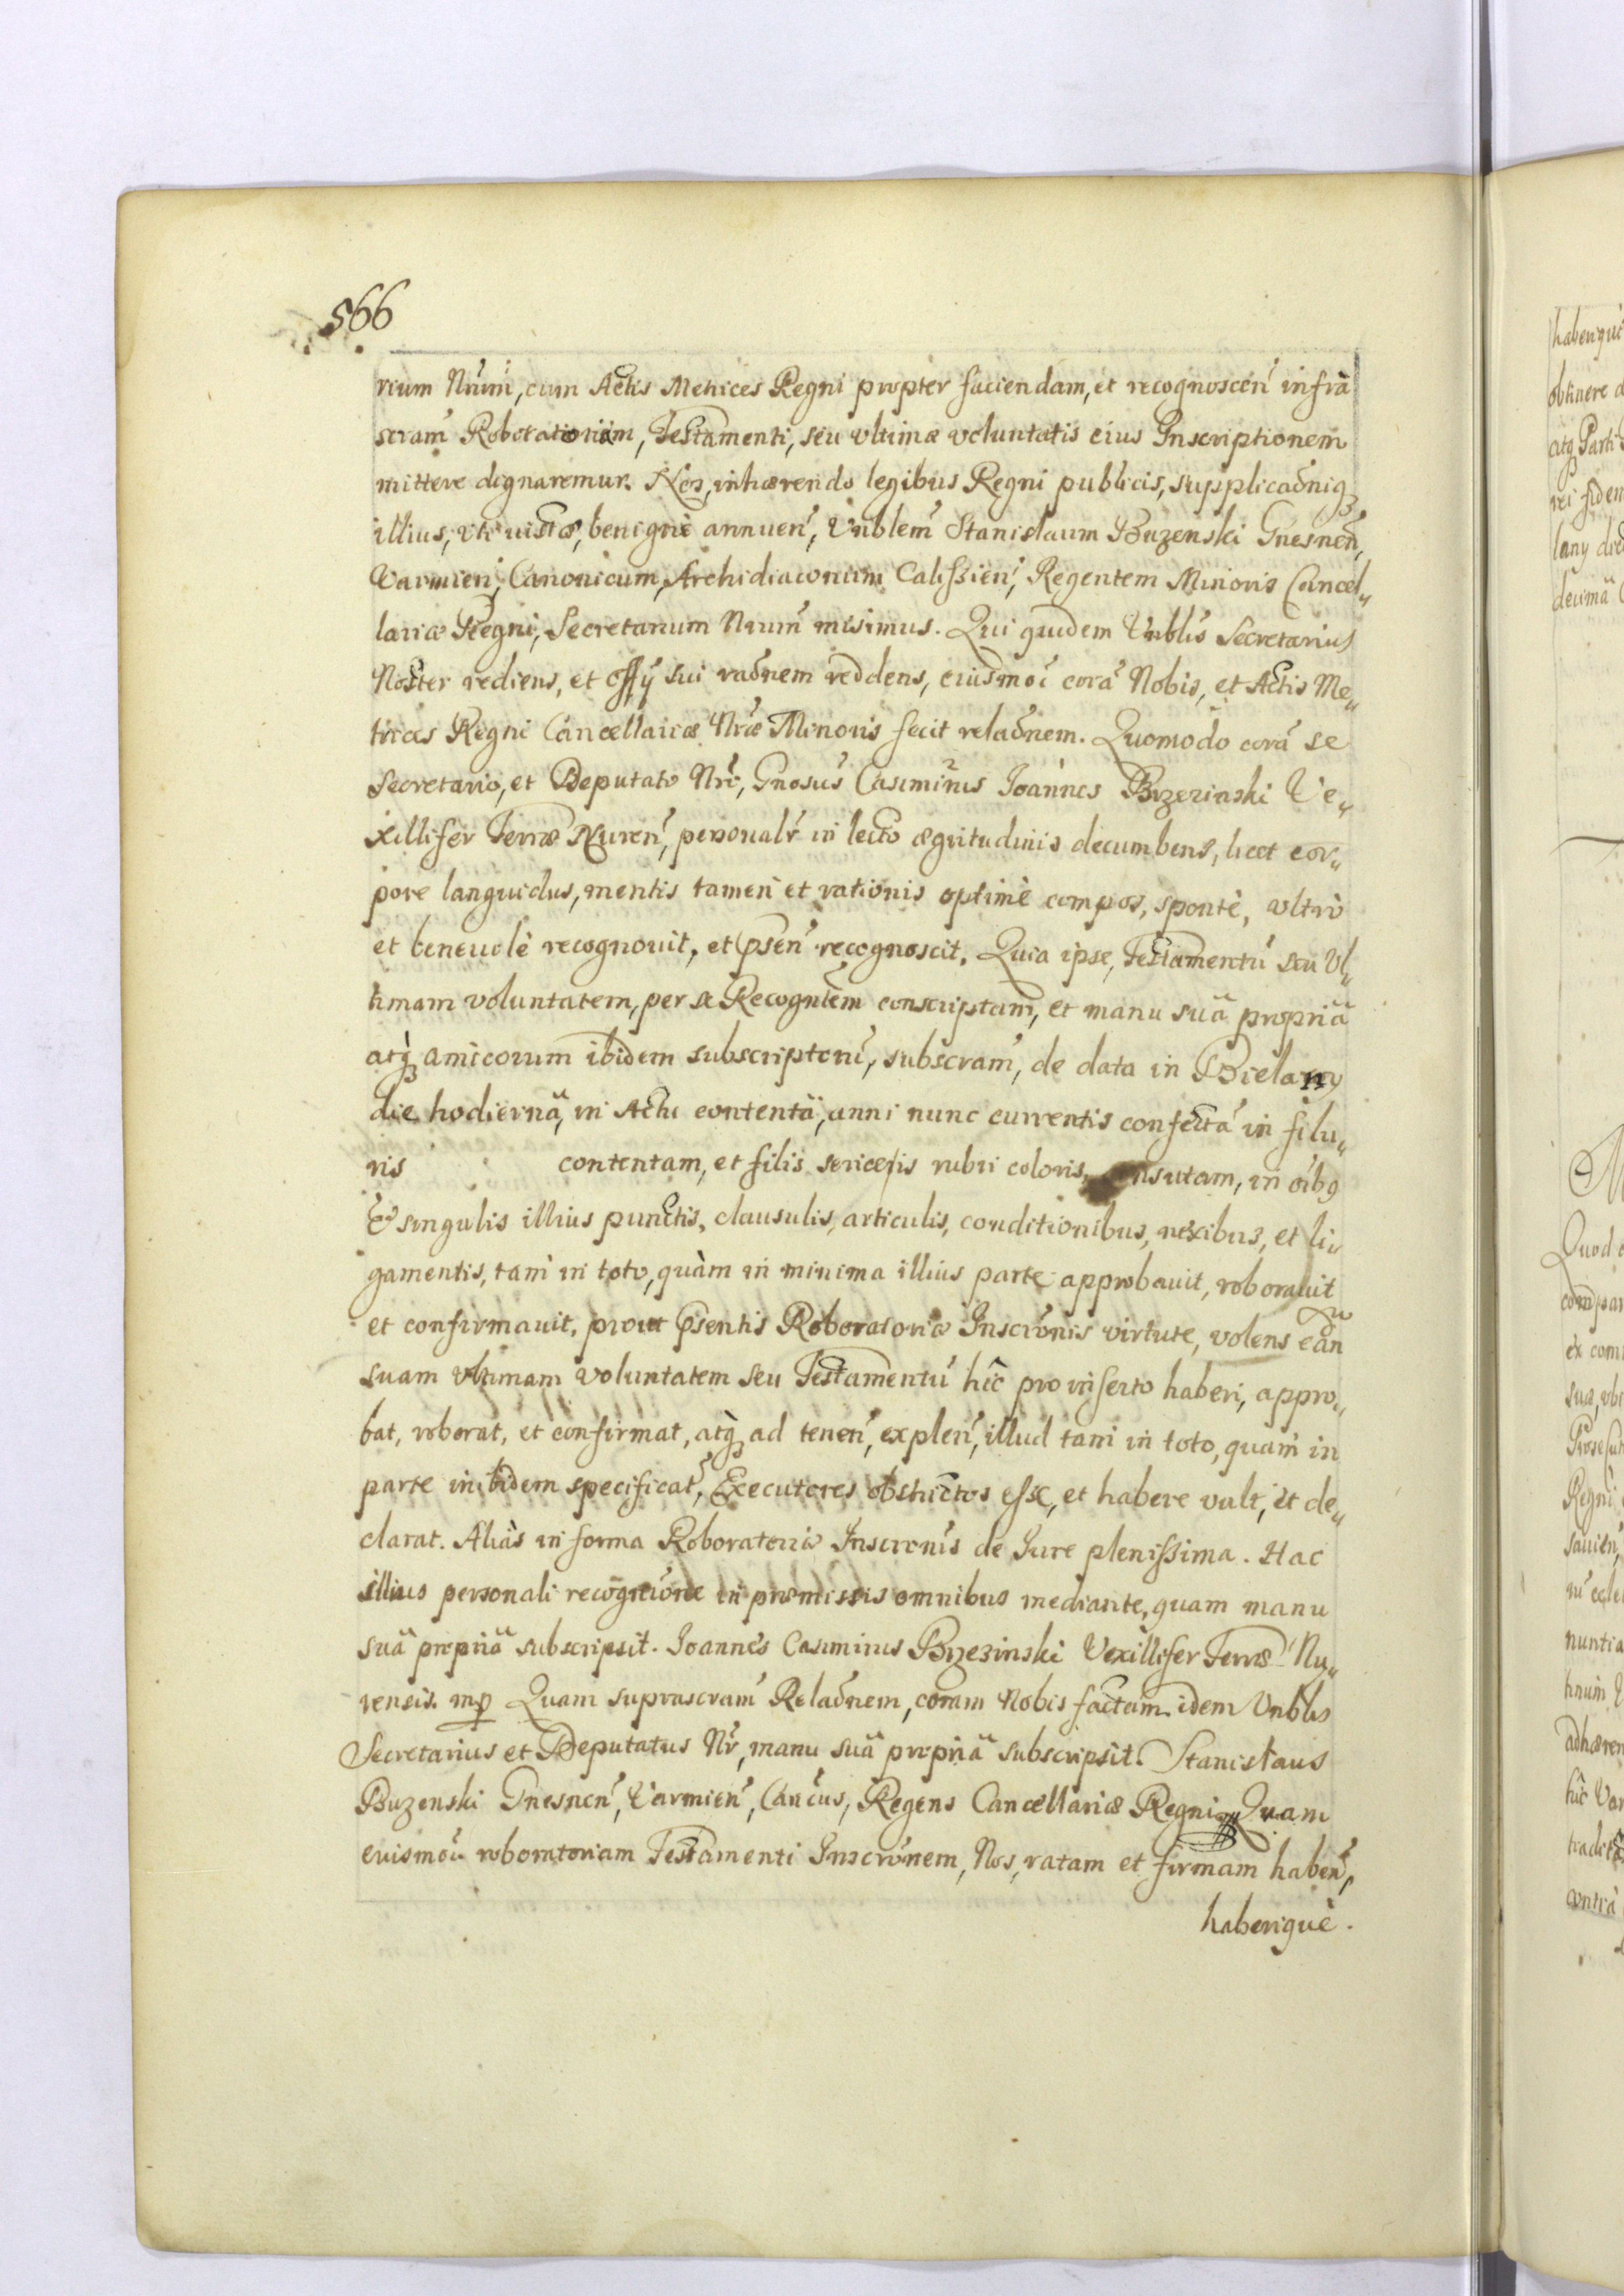 566
rium Nr̃um, cum Actis Metrices Regni propter faciendam, et recognoscen̄ infrà
scram̄ Roboratoriam, Testamenti, seu ultimæ voluntatis eius Inscriptionem
mittere dignaremur. Nos, inhærendo legibus Regni publicis, supplicaõniq
illius, uti iustæ, benignè annuen̄, Vnblem̄ Stanislaum Buzenski Gnesnen̄,
Varmien̄, Canonicum, Archidiaconum Calissien̄, Regentem Minoris Cancel„
lariæ Regni, Secretarium Nrum̄ misimus. Qui quidem Vnblis̄ Secretarius
Noster rediens, et offÿ sui raõnem reddens, eiusmoi corā Nobis, et Actis Me„
trices Regni Cancellariæ Nræ Minoris fecit relaõnem. Quomodo corā se
Secretario, et Deputato Nrō, Gnosus̄ Casimirus Joannes Brzezinski Ve„
xillifer Terræ Nuren̄, personalr̄ in lecto ægritudinis decumbens, licet cor„
pore languidus, mentis tamen et rationis optimè compos, spontè, ultrò
et beneuolè recognouit, et psen̄ recognoscit. Quia ipse, Testamentū seu Vl„
timam voluntatem, per se Recogntem̄ conscriptam, et manu suâ propriâ
atq̀ amicorum ibidem subscripton̄, subscram̄, de data in Bielany
die hodiernâ, in Actu contentâ, anni nunc currentis confectā in filu„
ris contentam, et filis sericeis rubri coloris, consutam, in oib9
& singulis illius punctis, clausulis, articulis, conditionibus, nexibus, et li„
gamentis, tam in toto, quàm in minima illius parte approbauit, roborauit
et confirmauit, prout psentis Roboratoriæ Inscronis̄ virtute, volens ean
suam ultimam voluntatem seu Testamentū hîc pro inserto haberi, appro„
bat, roborat, et confirmat, atq̀ ad tenen̄, explen̄, illud tam in toto, quam in
parte inibidem specificat̄, Executores obstrictos esse, et habere vult, et de„
clarat. Aliàs in forma Roboratoriæ Inscronis̄ de Jure plenissima. Hac
illius personali recognitione in præmissis omnibus mediante, quam manu
suâ propriâ subscripsit. Joannes Casimirus Brzezinski Vexillifer Terræ Nu„
rensis. mp Quam suprascram̄ Relaõnem, coram Nobis factam idem Vnblis
Secretarius et Deputatus Nr̄, manu suâ propriâ subscripsit. Stanislaus
Buzenski Gnesnen̄, Varmien̄, Cancus̄, Regens Cancellariæ Regni Quam
euismoi roboratoriam Testamenti Inscronem̄, Nos, ratam et firmam haben̄,
haberiquè.